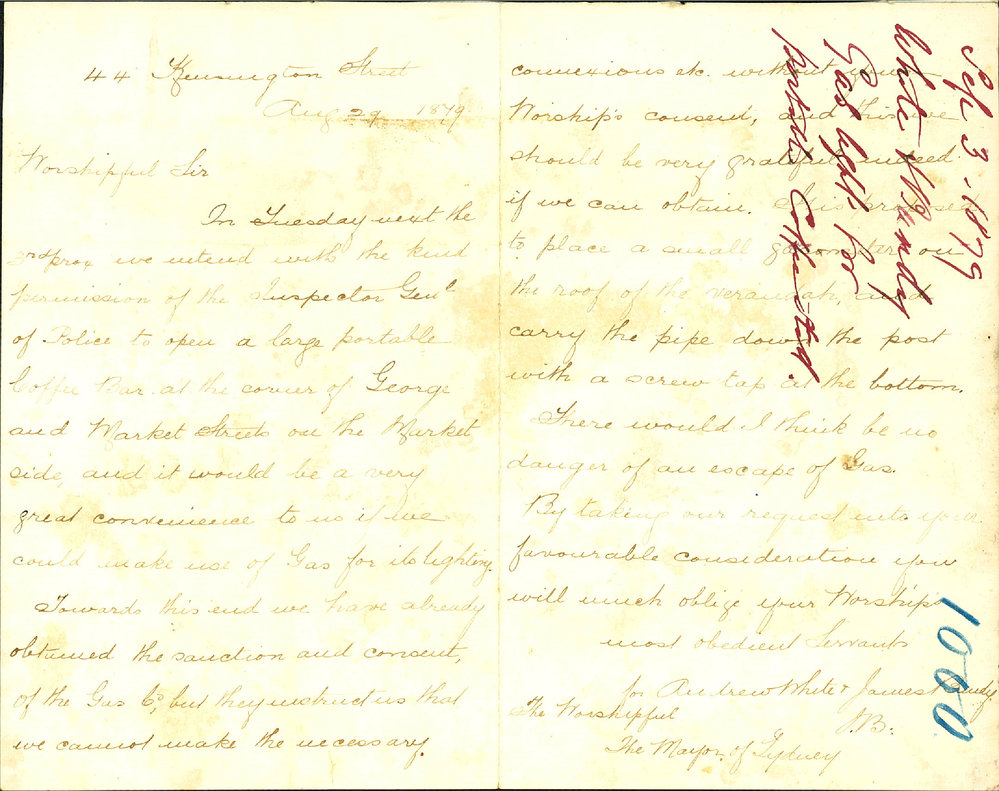 44 Kensington Street
Aug 29 1879
Worshipful Sir
In Tuesday next the
3rd prox we intend with the kind
permission of the Inspector Genl
of Police to open a large portable
Coffee Bar at the corner of George
and Market Streets on the Market
side, and it would be a very
great convenience to us if we
could make use of Gas for its lighting.
Towards this end we have already
obtained the sanction and consent,
of the Gas Co, but they instruct us that
we cannot make the necessary.
connexions etc. without your
Worship's consent, and this we
should be very grateful indeed
if we can obtain. It is proposed
to place a small gasometer on
the roof of the verandah, and
carry the pipe down the post
with a screw tap at the bottom.
There would I think be no
danger of an escape of Gas.
By taking our request into your
favourable consideration you
will much oblige your Worship's
most obedient Servants
for Andrew White & James
J.B.
The Worshipful
The Mayor of Sydney
Sep 3. 1879
White &
Gas light for
portable Coffee Stand.
1080